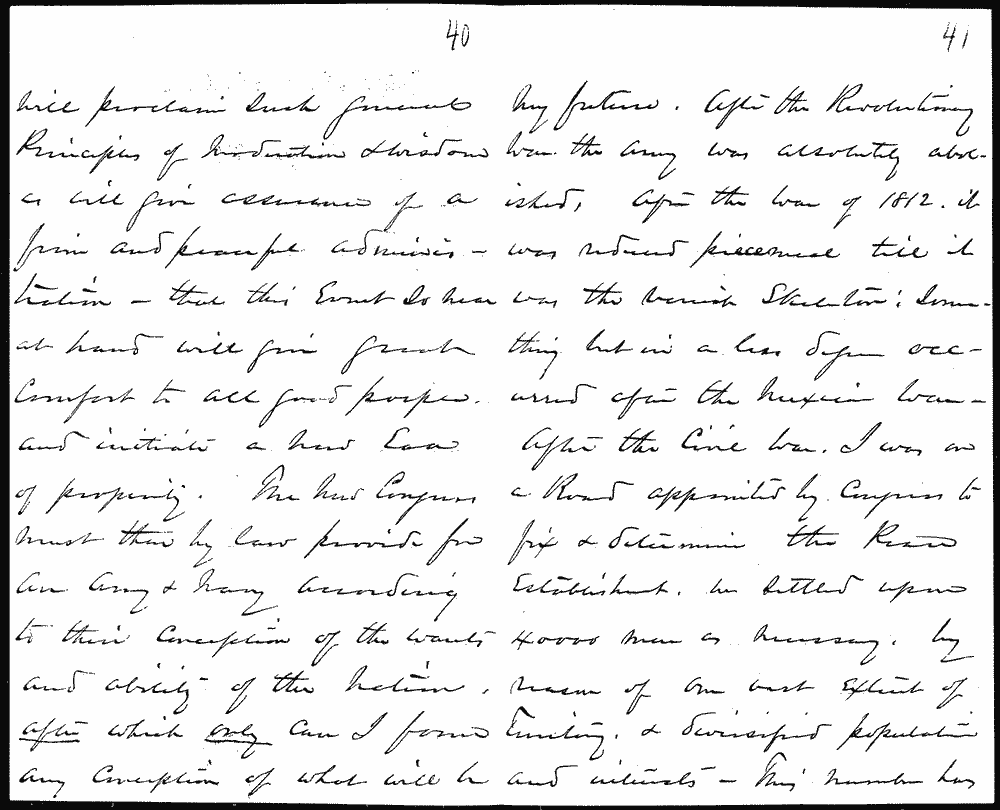 40
will proclaim such general
Principles of Moderation & Wisdom
as will give assurance of a
firm and peaceful adminis-
tration - that this Event so near
at hand will give great
Comfort to all good people.
and initiate a new Era
of prosperity. The New Congress
must then by law provide for
an Army & Navy according
to their Conception of the wants
and ability of the Nation,
after which only can I form
any Conception of what will be
41
my future. After the Revolutionary
War the Army was absolutely abol-
ished, After the War of 1812. it
was reduced piecemeal till it
was the merest Skeleton; Some-
thing but in a less degree occ-
urred after the Mexican War -
After the Civil War. I was on
a Board appointed by Congress to
fix & determine the Peace
Establishment. we settled upon
40000 men as necessary. by
reason of our vast Extent of
Territory. & diversified population
and interests - This number has